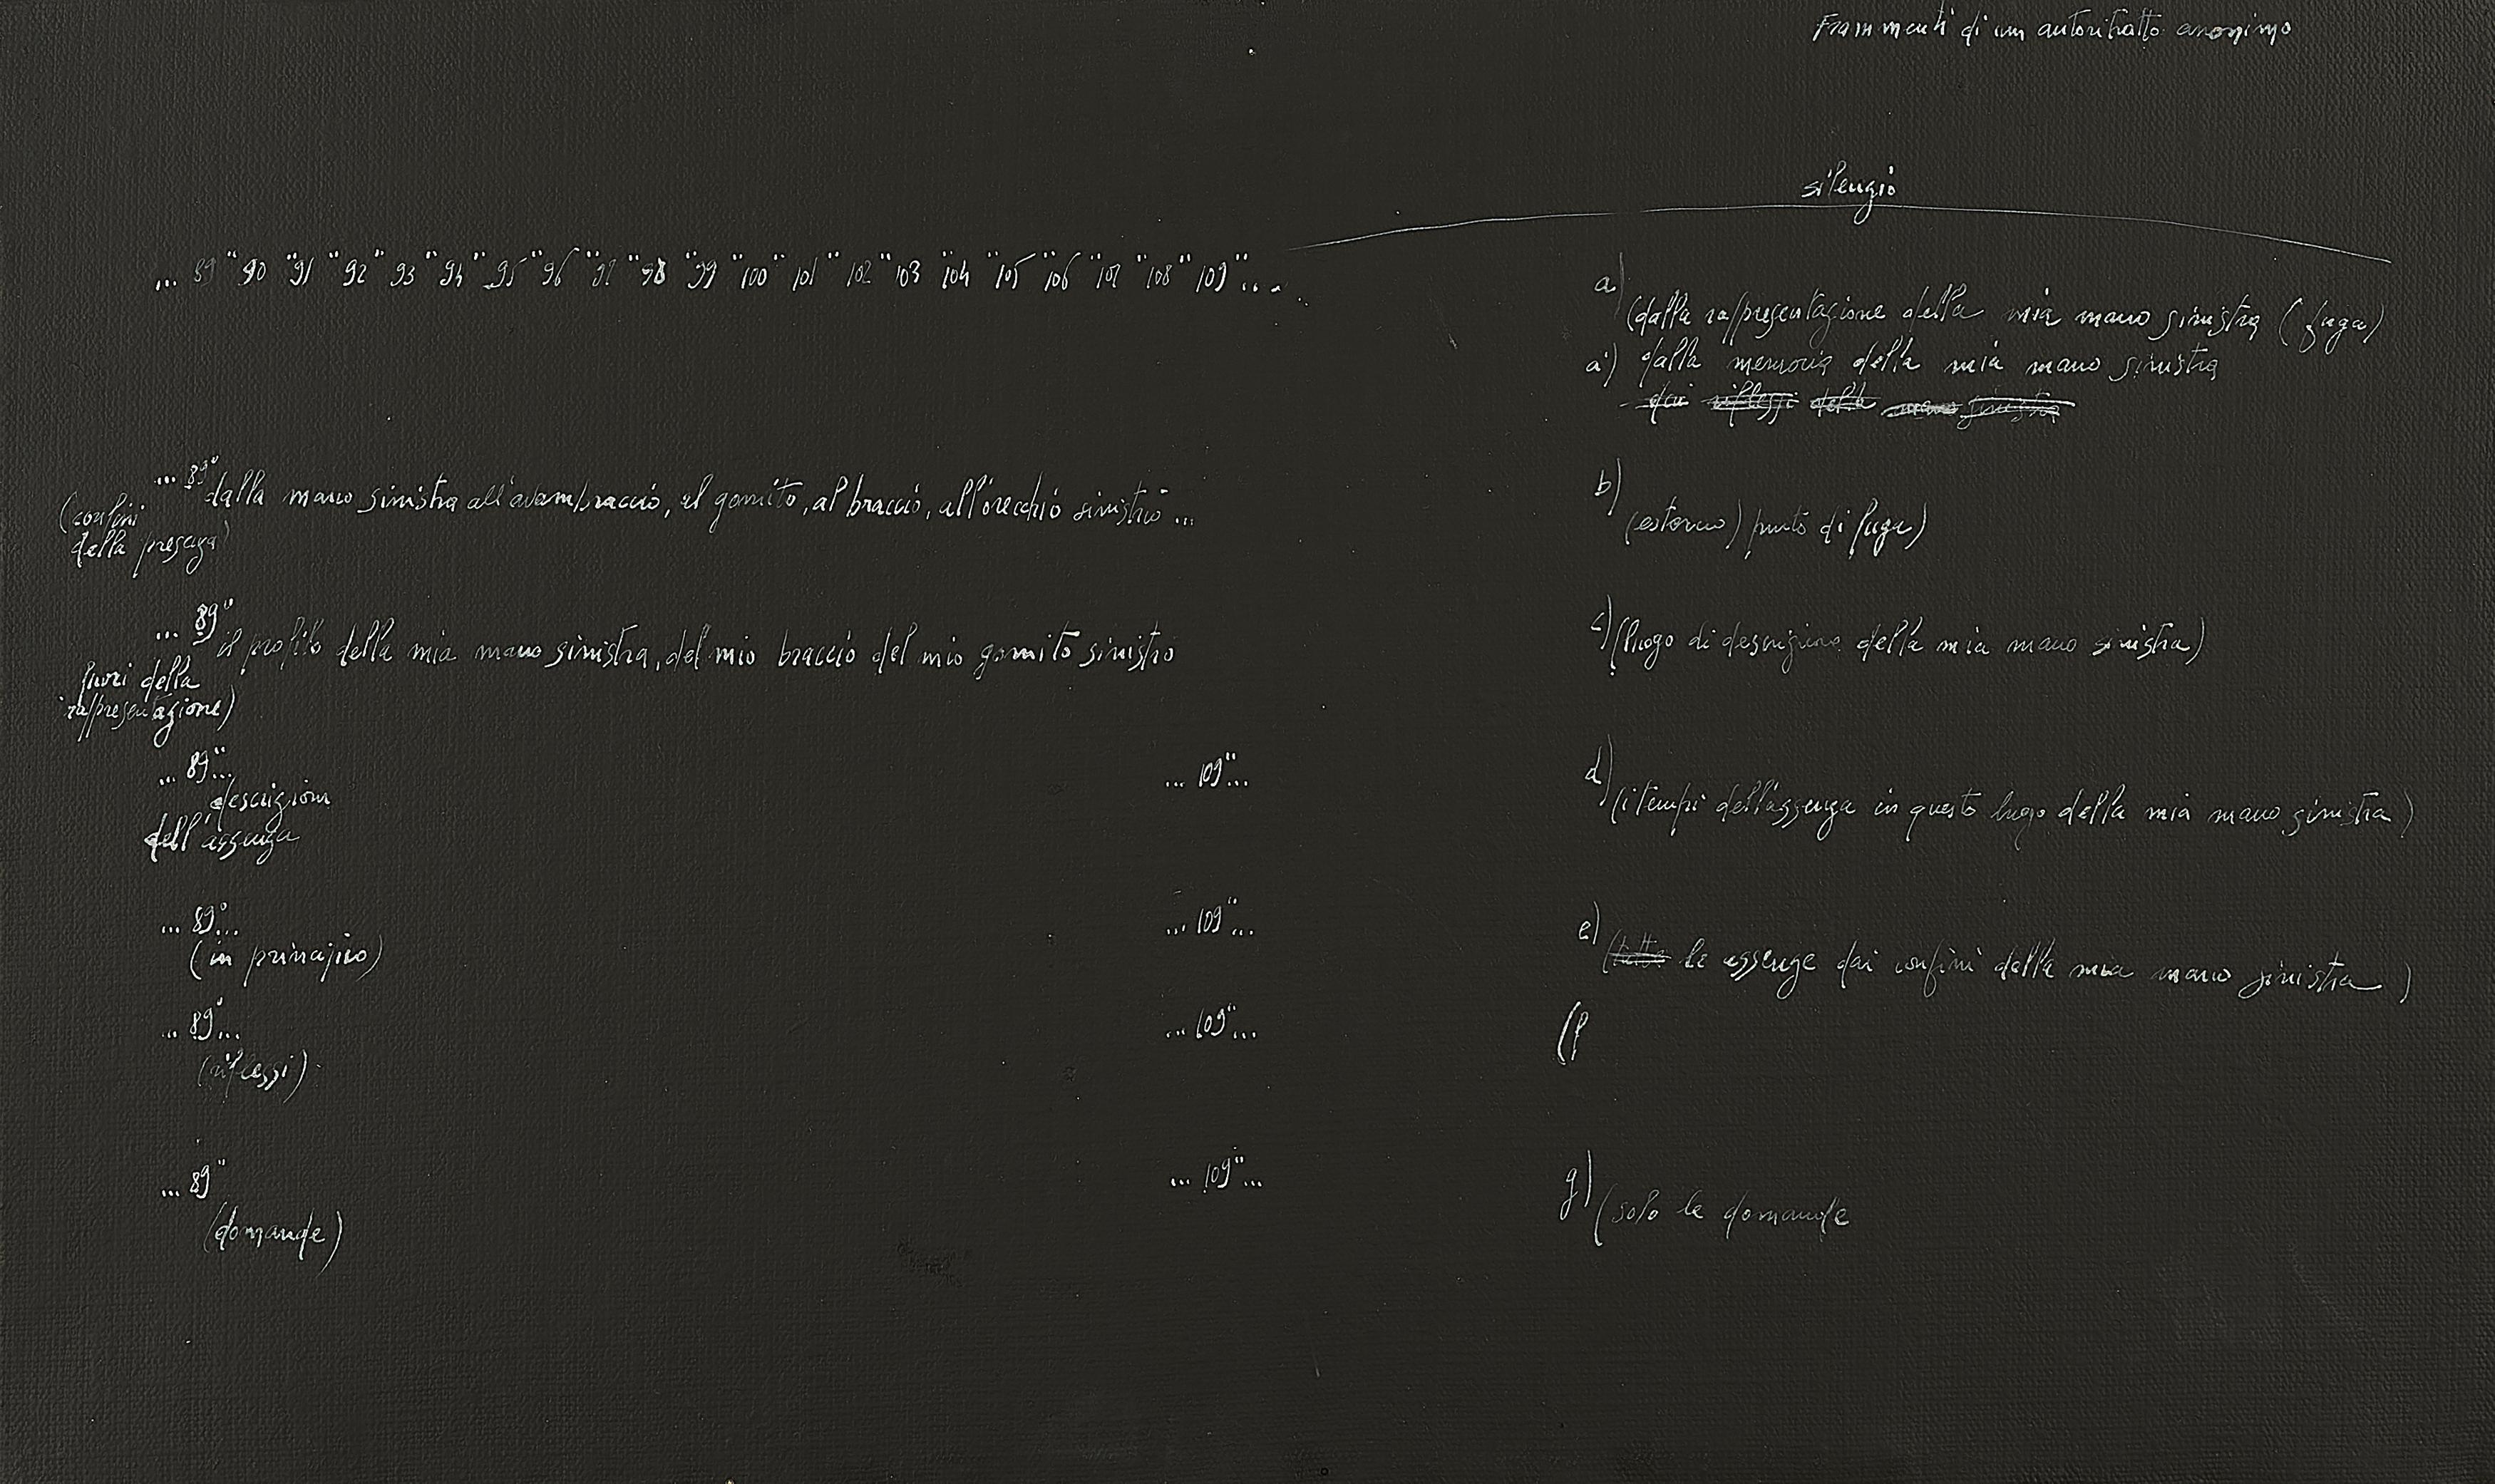 Frammenti di un autoritratto anonimo
silenzio
... 89" 90" 91" 92" 93" 94" 95" 96" 97" 98" 99" 100" 101" 102" 103" 104" 105" 106" 107" 108" 109"...
a)
(dalla rappresentazione della mia mano sinistra (fuga)
a') dalla memoria della mia mano sinistra
dai riflessi della mano sinistra
... 89" dalla mano sinistra all'avambraccio, al gomito, al braccio, all'orecchio sinistro ...
(confini
della presenza)
b)
(esterno) punto di fuga)
... 89" il profilo della mia mano sinistra, del mio braccio del mio gomito sinistro
fuori della
rappresentazione)
c) (luogo di descrizione della mia mano sinistra)
... 89"...
descrizioni
dell'assenza
... 109"...
d) (i tempi dell'assenza in questo luogo della mia mano sinistra)
... 89"...
(in principio)
... 109"...
e) (tutte le assenze dai confini della mia mano sinistra)
... 89"...
(riflessi)
... 109"...
(f
... 89"
(domande)
... 109"...
g) (solo le domande